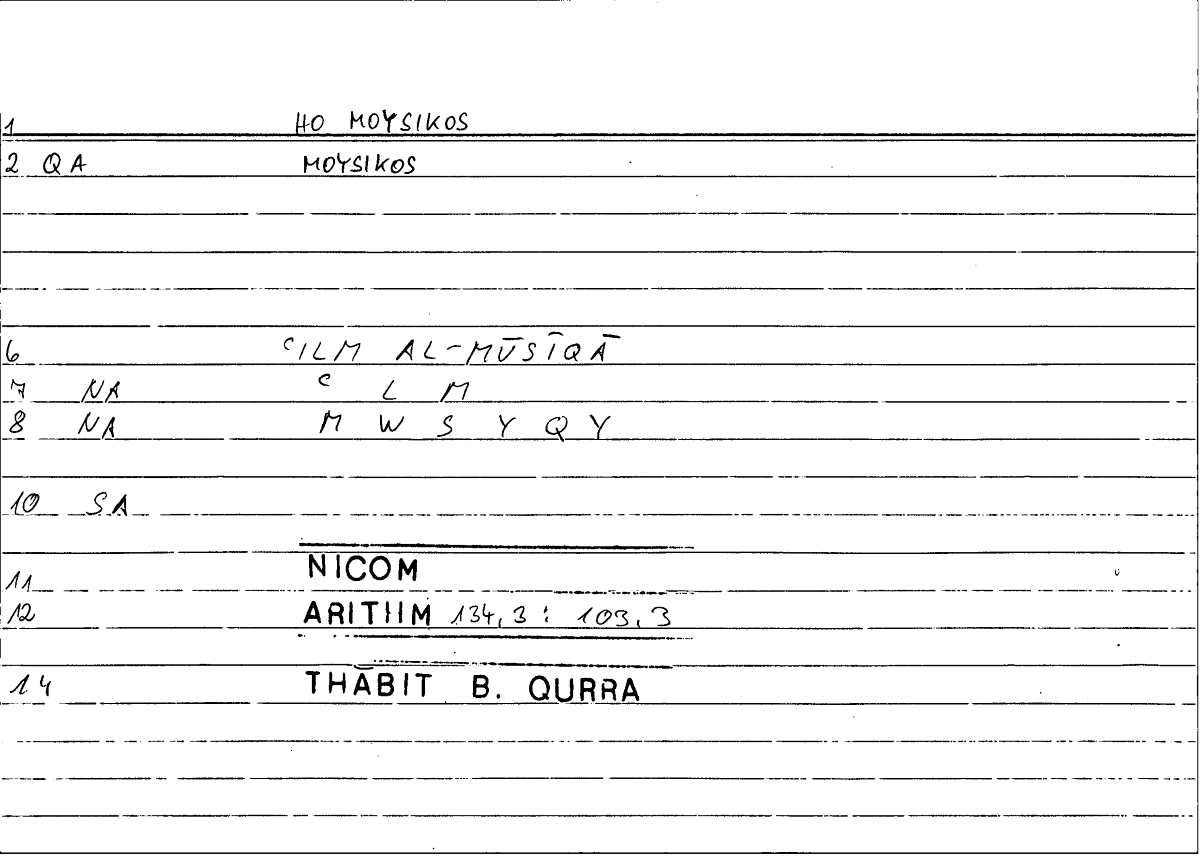 1 HO MOYSIKOS
2 QA MOYSIKOS
6 ʿILM AL-MŪSĪQĀ
7 NA ʿ L M
8 NA M W S Y Q Y
10 SA
11 NICOM
12 ARITHM 134,3 : 103,3
14 THĀBIT B. QURRA